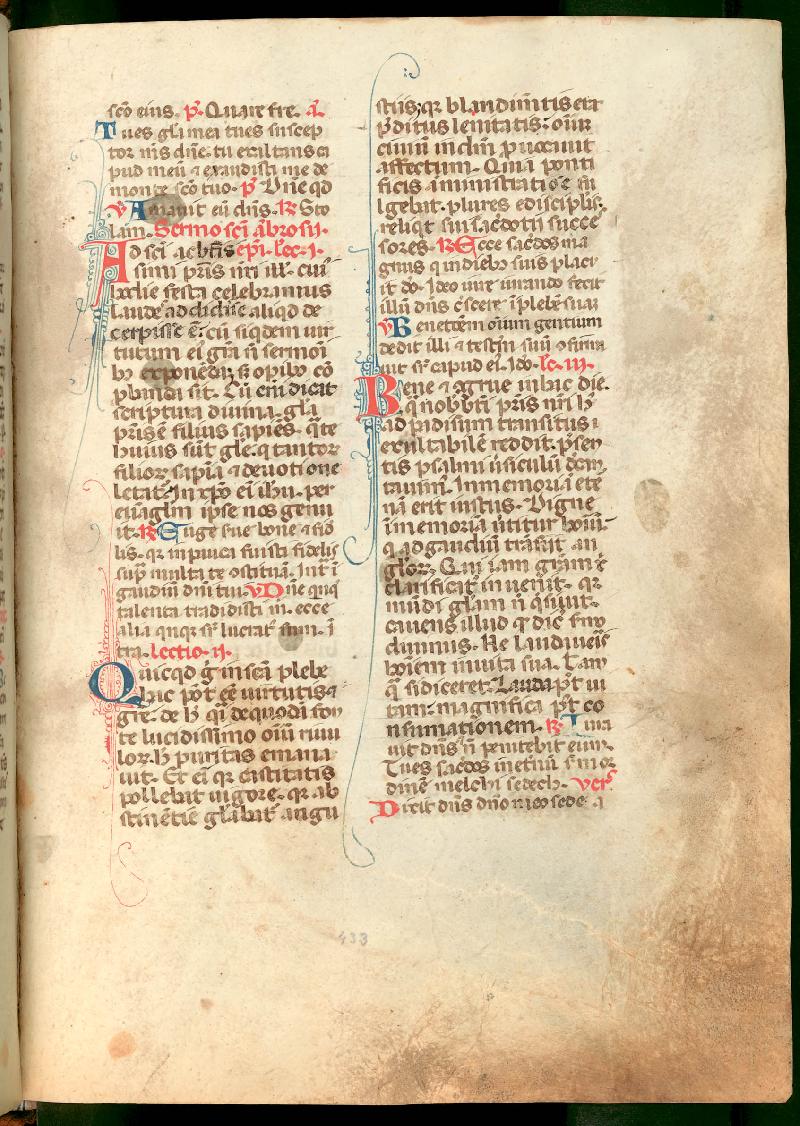 scõ eius. p̃. Quare fre. a͂.
Tu es gl̃a mea tu es suscep
tor m̃s dñe. tu exaltans ca
put meũ ⁊ exaudisti me de
monte scõ tuo. p̃ Dñe qd
v̓ Amauit eũ dñs. ℞ Sto
lam. Sermo sci ãbrosii.
Ad sci ac bt̃is epi. lec. i.
simi pr̃is nr̃i ill̃. cuiꝰ
hodie festa celebramus
laudẽ addidisse aliqͥd de
cerpisse ẽ. cũ siqͥdem uir
tutum eiꝰ gr̃a nõ sermoĩ
bꝫ exponẽda, sꝫ opibꝫ cõ
pbanda sit. Cũ eni dicat
scriptura diuina. gl̃a
pr̃is ẽ filius sapiẽs. qͣte
huius sũt gl̃e. q tantorꝫ
filiorꝫ sapĩa ⁊ deuotione
letat̃. In xpõ eñ ihũ. per
euãglm̃ ipse nos genu
it. ℞ Euge serue bone ⁊ fid
lis. qꝛ in pauca fuisti fidelis
sup̃ multa te ꝯstituã. Int̃ i
gaudiũ dñi tui. v̓ Dñe qnqꝫ
talenta tradidisti m̃. ecce
alia qnqꝫ sꝑ lucrat̃ sum. ĩ
tra. lectio. ij.
Quicqd g̃ in scã plebe
hac pot̃ eẽ uirtutis ⁊
grẽ. de hꝰ qͣi dequodã fon
te lucidissimo oĩũ riuu
lorꝫ. hꝰ puritas emana
uit. Et eñ qꝛ castitatis
pollebat uigore. qꝛ ab
stinẽtie gl̃abat̃ angu
stiis; qꝛ blandimẽtis erat
p̃ditus lenitatis; oĩũ
ciuiũ in dm̃ puocauit
affectum. Qui ponti
ficis aministratiõe fu
lgebat. plures ediscipl̃is
reliqͥt sui sacdotii succe
sores. ℞ Ecce sacdos ma
gnus qͥ in diebꝫ suis placu
it dõ. Ideo iure iurando fecit
illũ dñs c̃scere ĩ plebẽ suaꝫ
v̓ Benetõem oĩum gentium
dedit illi ⁊ testm̃ suũ ꝯfirma
uit sꝑ caput eiꝰ. Ido. lc. iij.
Bene ⁊ agrue in hac die.
qͣ nob bt̃i pr̃is nr̃i hꝰ
ad padisum transitus i
exultabilẽ reddit. p̃sen
tis psalmi ũsiculũ decã
tauimꝰ. In memoriã ete
nã erit iustus. Digne
ĩ memoriã ũtitur hoĩuꝫ
q ad gaudiũ trãsiit an
gl̃orꝫ. Cui iam gr̃aꝫ ꝯ
clarificat̃ inuenit. qꝛ
mũdi gl̃am nõ qͣsiuit.
cauens illud q̃ dic̃ fmo
diuinus. Ne laudaueis
hoĩem in uita sua. Tãm
qͣ si diceret. Lauda pt̃ ui
tam. magnifica pt̃ co
nsumationem. ℞ Iura
uit dñs ⁊ nõ penitebit eum.
Tu es sacdos in etnũ. s̃m or
dinẽ melchisedech. vers̓.
Dixit dñs dño meo sede. a
433